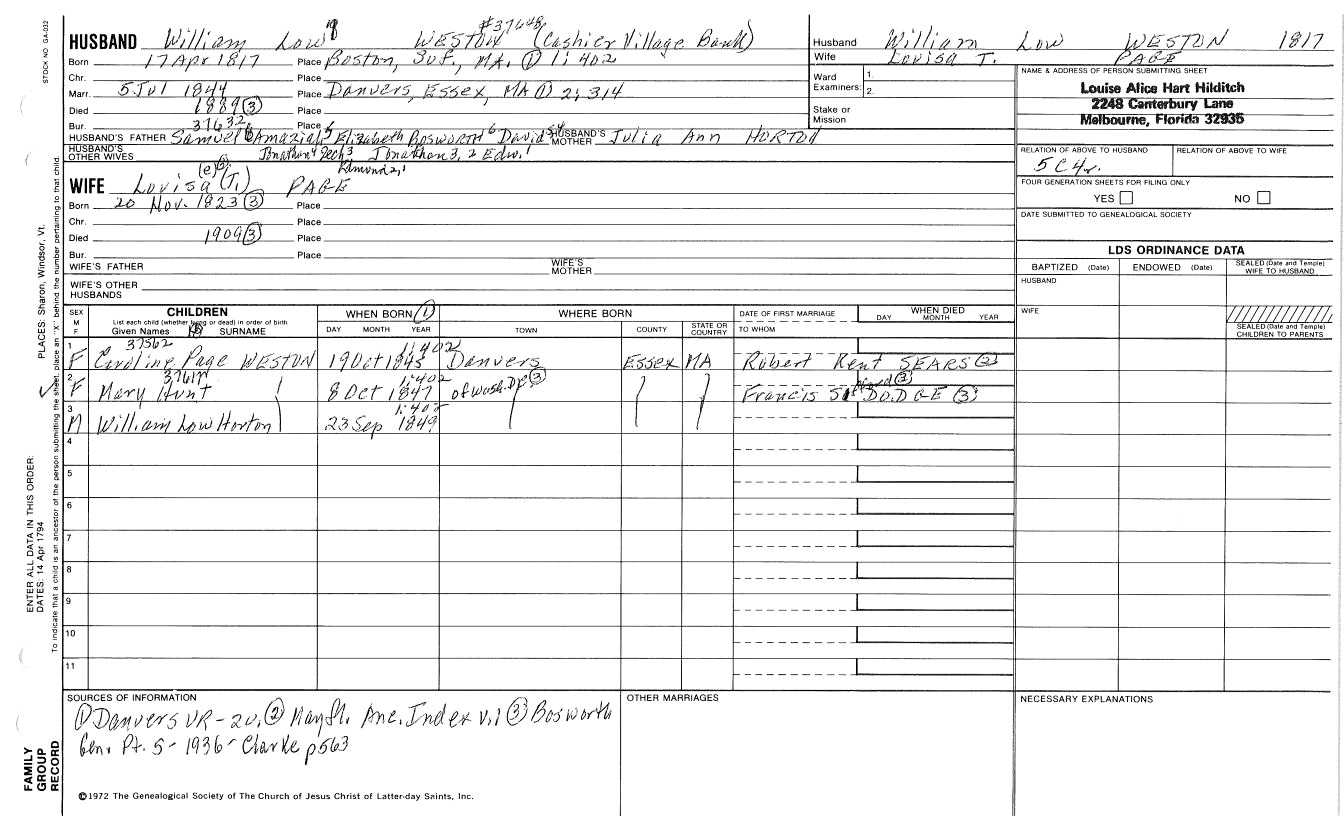 STOCK NO. GA-032
#37648
HUSBAND William Low WESTON (Cashier Village Bank)
Born 17 Apr 1817 Place Boston, Suf., MA. ① 1:402
Chr. Place
Marr. 5 Jul 1844 Place Danvers, Essex, MA ① 2:314
Died 1889 ③ Place
Bur. Place
37632
HUSBAND'S FATHER Samuel Amaziah 5 Elizabeth Bosworth 6 David 5
HUSBAND'S MOTHER Julia Ann HORTON
HUSBAND'S OTHER WIVES
Jonathan 3, 2 Edw. 1
Edmond 2, 1
WIFE Lovisa (T.) PAGE
(e) ②
Born 20 Nov. 1823 ③ Place
Chr. Place
Died 1909 ③ Place
Bur. Place
WIFE'S FATHER
WIFE'S MOTHER
WIFE'S OTHER HUSBANDS
Husband William Low WESTON 1817
Wife Lovisa T. PAGE
Ward 1.
Examiners: 2.
Stake or Mission
NAME & ADDRESS OF PERSON SUBMITTING SHEET
Louise Alice Hart Hilditch
2248 Canterbury Lane
Melbourne, Florida 32935
RELATION OF ABOVE TO HUSBAND RELATION OF ABOVE TO WIFE
5C4r.
FOUR GENERATION SHEETS FOR FILING ONLY
YES NO
DATE SUBMITTED TO GENEALOGICAL SOCIETY
LDS ORDINANCE DATA
BAPTIZED (Date) ENDOWED (Date) SEALED (Date and Temple) WIFE TO HUSBAND
HUSBAND
WIFE
SEALED (Date and Temple) CHILDREN TO PARENTS
SEX M F
CHILDREN
List each child (whether living or dead) in order of birth
Given Names SURNAME
WHEN BORN ①
DAY MONTH YEAR
WHERE BORN
TOWN COUNTY STATE OR COUNTRY
DATE OF FIRST MARRIAGE
TO WHOM
WHEN DIED
DAY MONTH YEAR
37562 1:402
1 F Caroline Page WESTON 19 Oct 1845 Danvers Essex MA Robert Kent SEARS ②
1:402
2 F Mary Hunt 8 Oct 1847 of Wash. DC ③ Francis DODGE ③
3 M William Low Horton 23 Sep 1849
4
5
6
7
8
9
10
11
SOURCES OF INFORMATION
① Danvers VR - 2v, ② Mayfl. Anc. Index v.1 ③ Bosworth
Gen. Pt. 5 - 1936 - Clarke p563
OTHER MARRIAGES
NECESSARY EXPLANATIONS
©1972 The Genealogical Society of The Church of Jesus Christ of Latter-day Saints, Inc.
FAMILY GROUP RECORD
ENTER ALL DATA IN THIS ORDER:
DATES: 14 Apr 1794
PLACES: Sharon, Windsor, Vt.
To indicate that a child is an ancestor of the person submitting the sheet, place an "X" behind the number pertaining to that child.